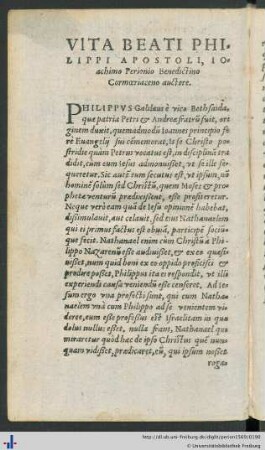 VITA BEATI PHI-
LIPPI APOSTOLI, IO-
achimo Perionio Benedictino
Cormœriaceno auctore.
PHILIPPVS Galilæus è vico Bethsaida,
quæ patria Petri & Andreæ fratrũ fuit, ori
ginem duxit, quemadmodũ Ioannes principio fe
rè Euangelij sui cõmemorat, is se Christo po-
stridie quàm Petrus vocatus est, in disciplinã tra
didit, cùm eum Iesus admonuisset, vt se ille se-
queretur. Sic autẽ eum secutus est, vt ipsum, nõ
hominẽ solùm sed Christũ, quem Moses & pro-
phetæ venturũ prædixissent, esse profiteretur.
Neque verò eam quã de Iesu opinionẽ habebat,
dissimulauit, aut celauit, sed eius Nathanaelem
qui ei primus factus est obuiã, participẽ sociũ-
que fecit. Nathanael enim cùm Christũ à Phi-
lippo Nazarenũ esse audiuisset, & ex eo quæsi-
uisset, num quid boni ex eo oppido proficisci &
prodire posset, Philippus ita ei respondit, vt illi
experiendi causa veniendũ esse censeret. Ad Ie-
sum ergo vna profecti sunt, qui cum Natha-
naelem vnà cum Philippo ad se venientem vi-
deret, eum esse professus est Israelitam in quo
dolus nullus esset, nulla fraus, Nathanael quũ
miraretur quòd hæc de ipso Christus quẽ nun-
quam vidisset, prædicaret, eũ, qui ipsum nosset
roga-
http://dl.ub.uni-freiburg.de/diglit/perion1569/0190
© Universitätsbibliothek Freiburg